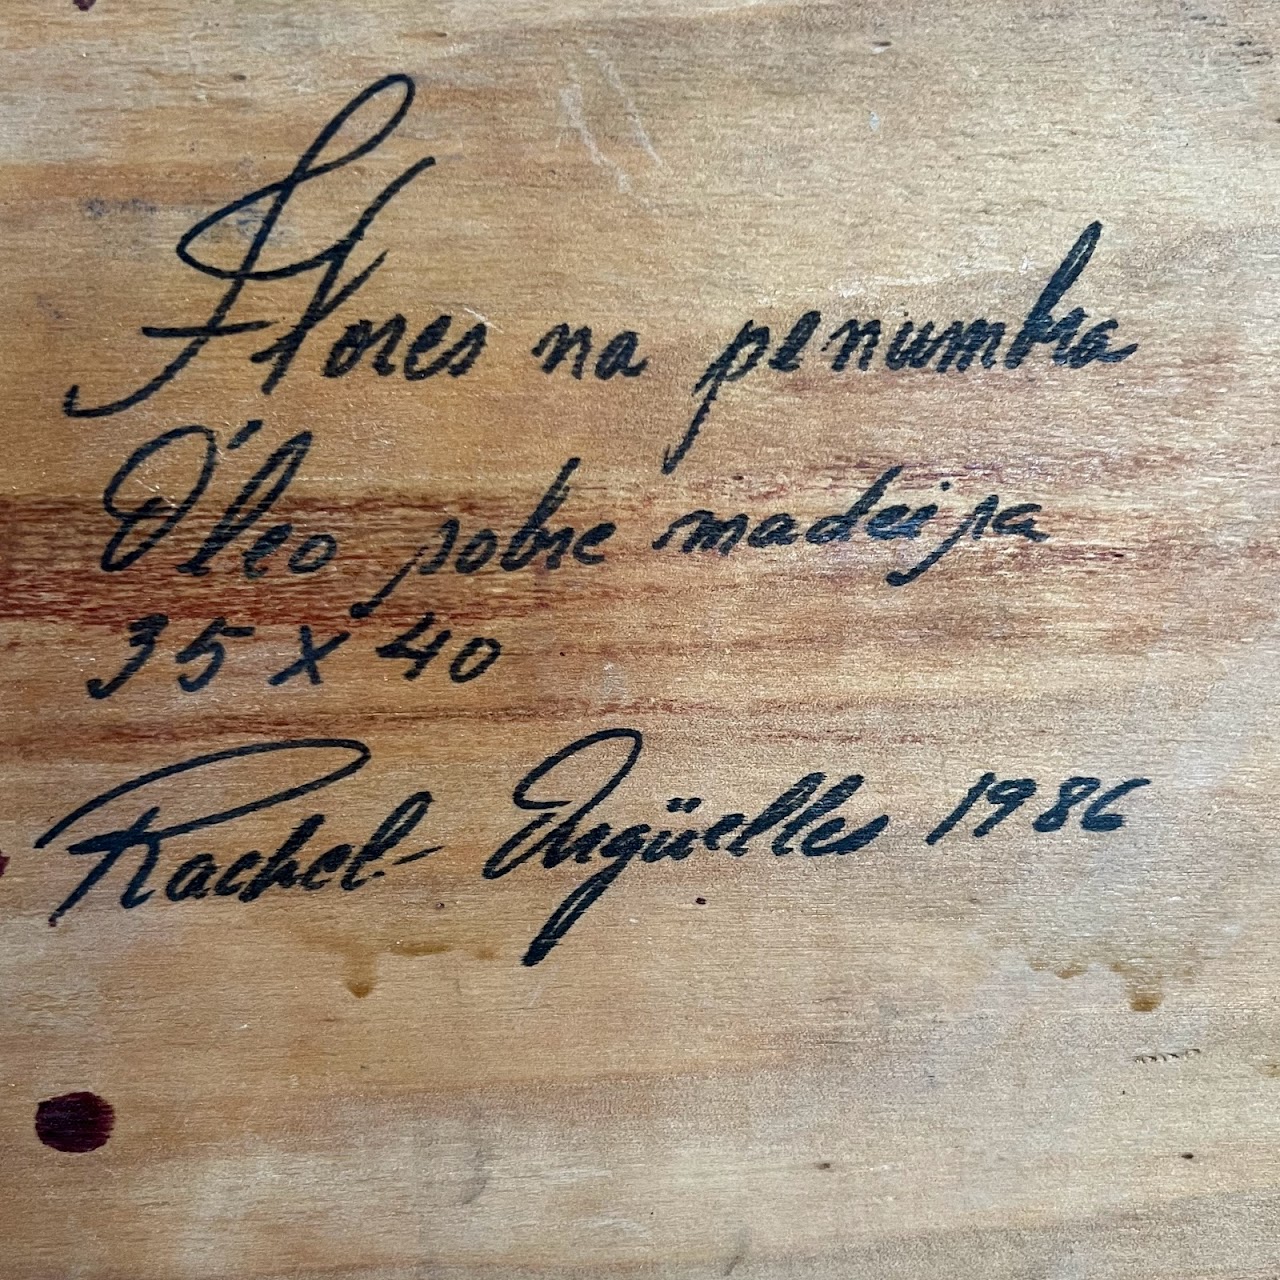 Flores na penumbra
Óleo sobre madeira
35 x 40
Rachel Argüelles 1986